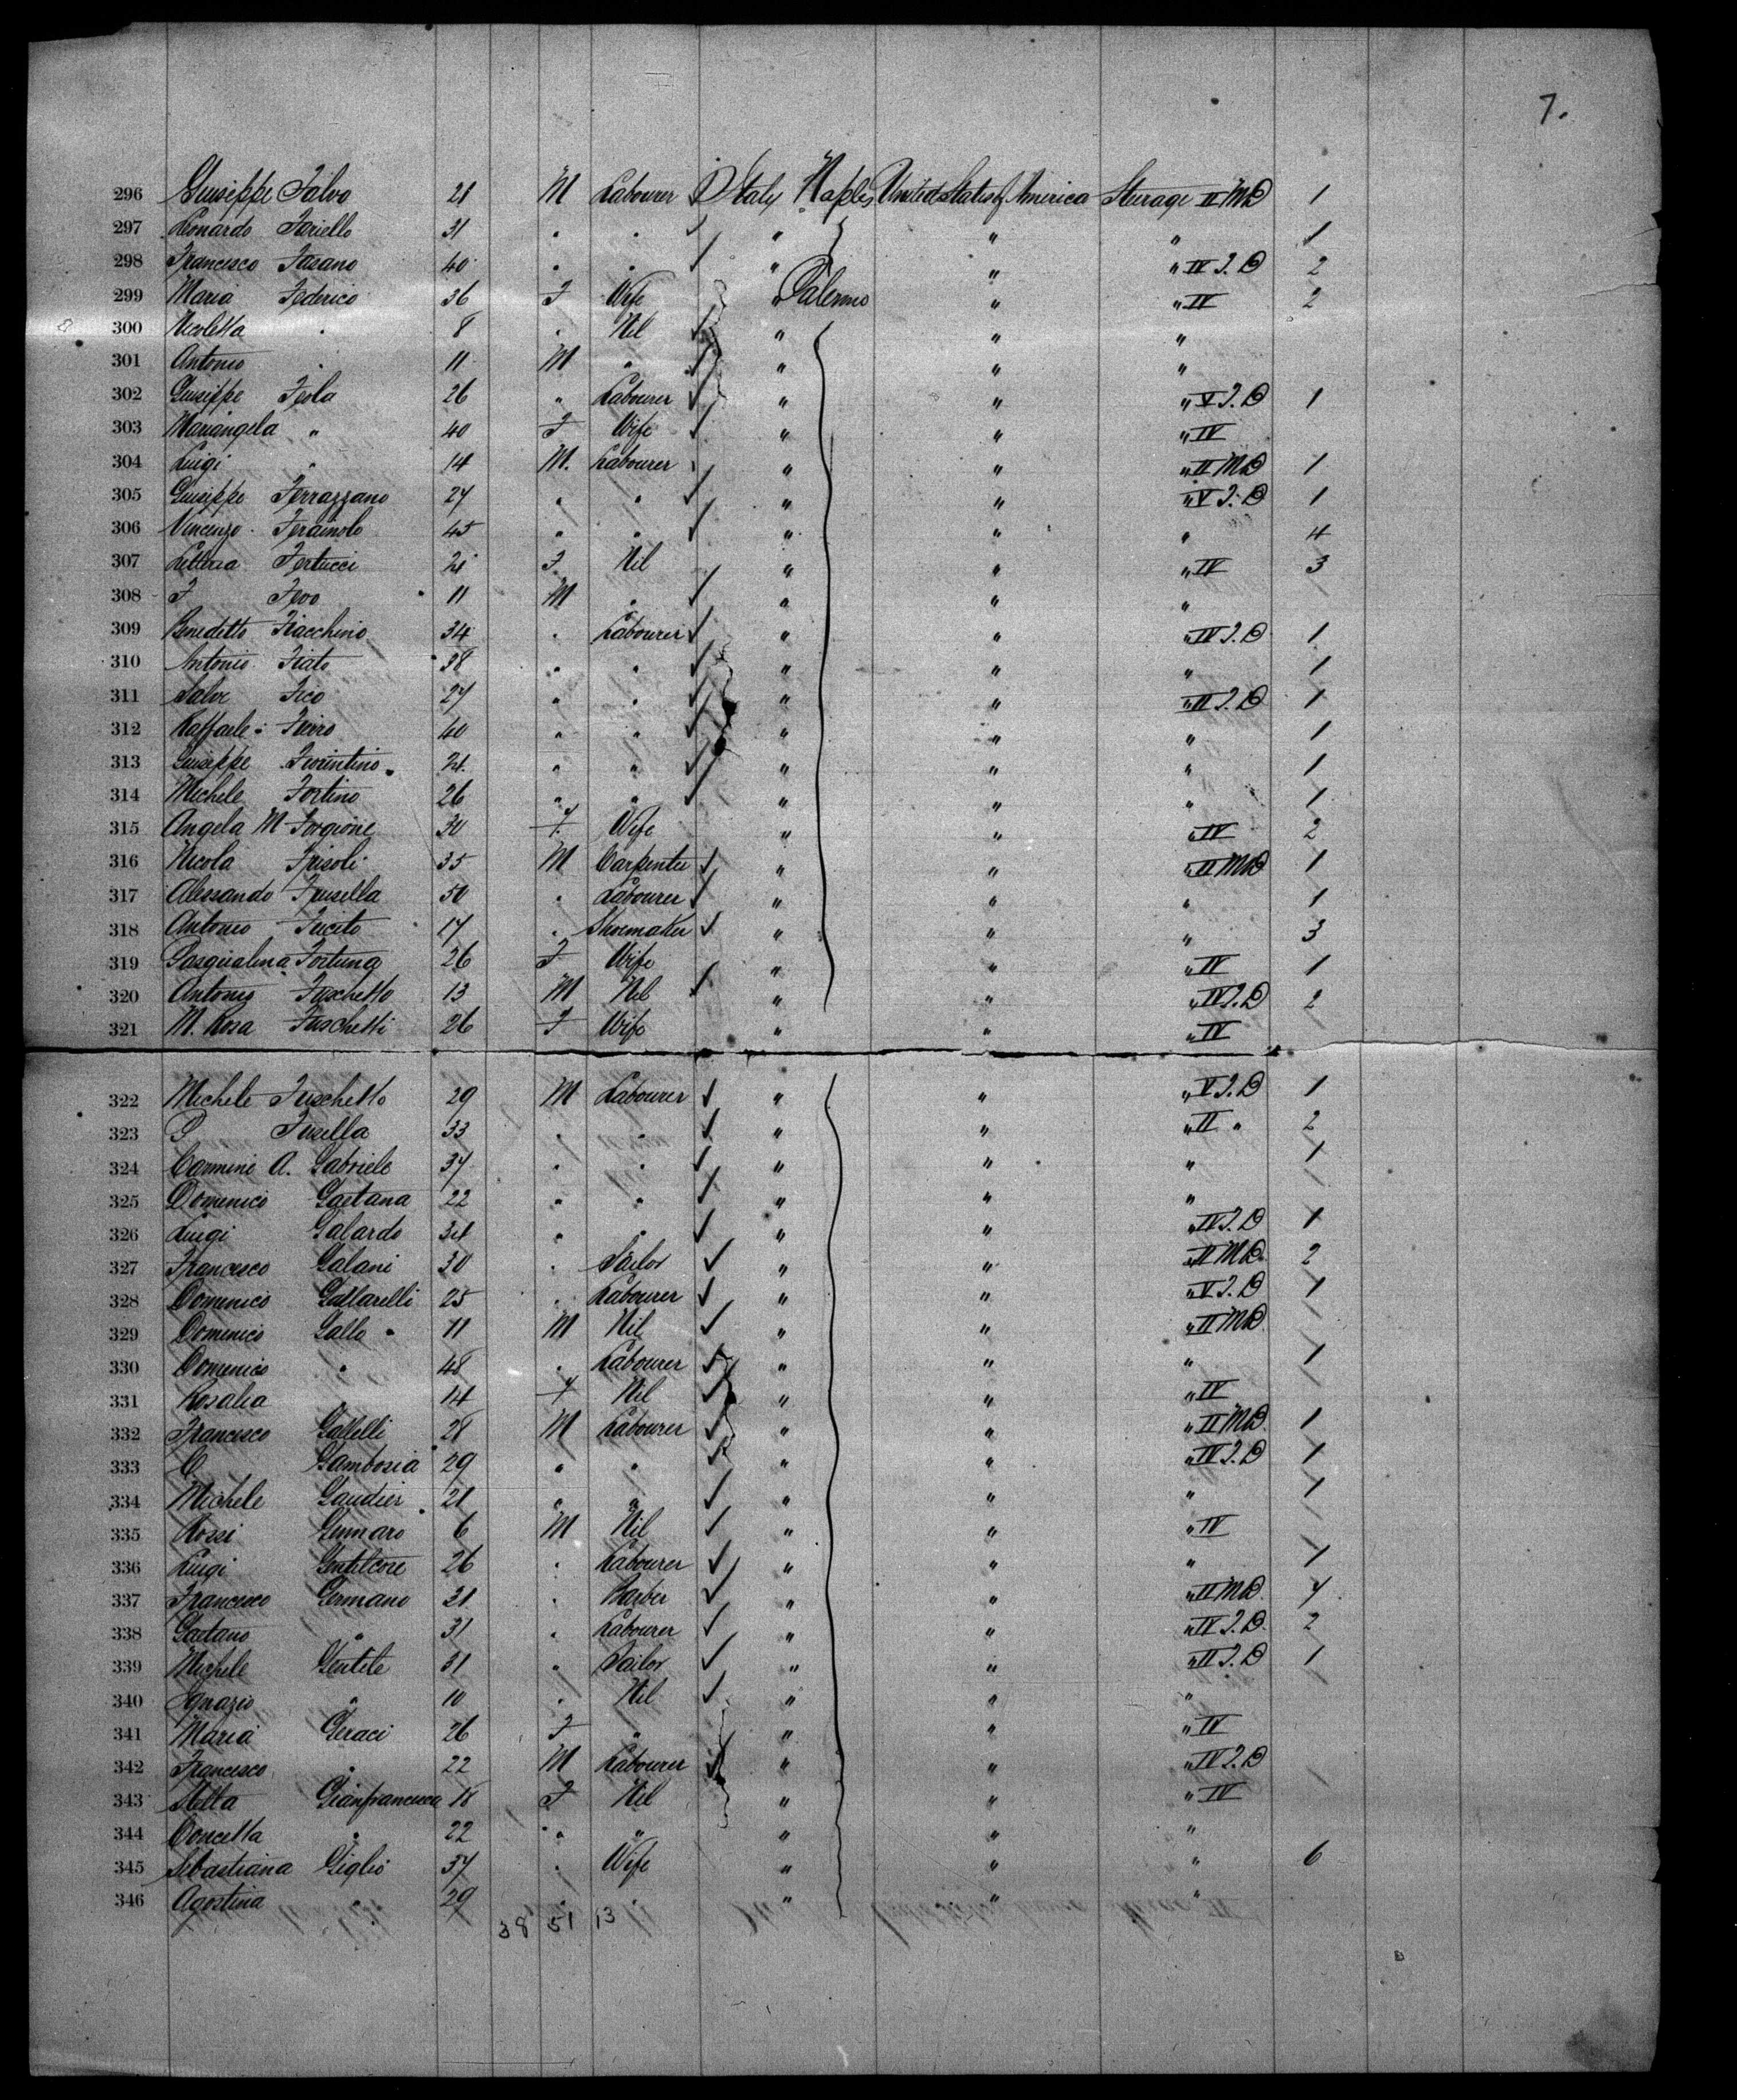 7.
296 Giuseppe Falvo 21 M Labourer Italy Naples United States of America Sterage II MD 1
297 Leonardo Fariello 31 " " " " " 1
298 Francesco Fasano 40 " " " " " IV S.D 2
299 Maria Federico 36 F Wife " Palermo " " IV 2
300 Nicoletta " 8 " Nil " " "
301 Antonio " 11 M " " " "
302 Giuseppe Feola 26 " Labourer " " " V S.D 1
303 Mariangela " 40 F Wife " " " IV
304 Luigi " 14 M. Labourer " " " II MD 1
305 Giuseppe Ferrazzano 27 " " " " " V S.D 1
306 Vincenzo 45 " " " " " 4
307 Letteria Fertucci 21 F Nil " " " IV 3
308 F Fevo 11 M " " " "
309 Benedetto Fiacchino 34 " Labourer " " " IV S.D 1
310 Antonio Fiato 38 " " " " " 1
311 Salvr Fico 27 " " " " " III S.D 1
312 Raffaele Fierro 40 " " " " " 1
313 Giuseppe Fiorintino 21 " " " " " 1
314 Michele Fortino 26 " " " " " 1
315 Angela M Forgione 30 F. Wife " " " IV 2
316 Nicola Frisoli 35 M Carpenter " " " II MD 1
317 Alessando Frusella 50 " Labourer " " " 1
318 Antonio Fucito 17 " Shoemaker " " " 3
319 Pasqualina Fortuna 26 F Wife " " " IV 1
320 Antonio Fuschetto 13 M Nil " " " IV S.D 2
321 M. Rosa Fuschetti 26 F Wife " " " IV
322 Michele Fuschetto 29 M Labourer " " " V S.D 1
323 P Fusella 33 " " " " " II " 2
324 Carmine A. Gabriele 37 " " " " " 1
325 Domenico Gaetana 22 " " " " "
326 Luigi Galardo 34 " " " " " IV S.D 1
327 Francesco Galani 30 " Sailor " " " II MD. 2
328 Domenico Gallarelli 25 " Labourer " " " V S.D 1
329 Domenico Gallo 11 M Nil " " " II MD.
330 Domenico " 48 " Labourer " " " 1
331 Rosalia 14 F Nil " " " IV
332 Francesco Gallelli 28 M Labourer " " " II MD. 1
333 C Gambosia 29 " " " " " IV S.D 1
334 Michele Gaudier 21 " " " " " 1
335 Rossi Gennaro 6 M Nil " " " IV
336 Luigi Gentilcore 26 " Labourer " " " 1
337 Francesco Germano 21 " Barber " " " II MD. 4
338 Gaetano " 31 " Labourer " " " IV S.D. 2
339 Michele Gentile 31 " Sailor " " " II S.D 1
340 Ignazio " 10 " Nil " " "
341 Maria Geraci 26 F " " " " IV
342 Francesco " 22 M Labourer " " " IV S.D
343 Stella Gianfrancesca 18 F Nil " " " IV
344 Concetta " 22 " " " " "
345 Sebastiana Giglio 37 " Wife " " " 6
346 Agostina " 29 " " " " "
38 51 13